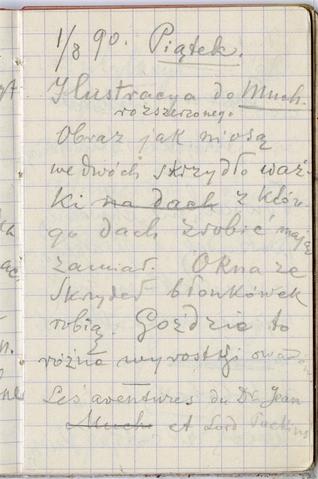 1/8 90. Piątek.
Ilustracya do Much.
rozszerzonego
Obraz jak niosą
we dwóch skrzydło waż-
ki na dach z któr-
go dach zrobić mają
zamiar. Okna ze
skrzydeł błonkówek
robią. Goździe to
różne wyrostki owadów
Les aventures du Dr. Jean
Much et Lord